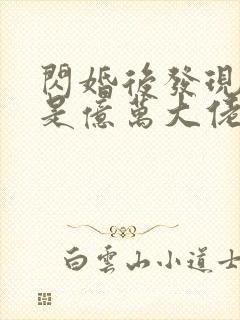 閃婚後發現
是億萬大佬
白雲山小道士